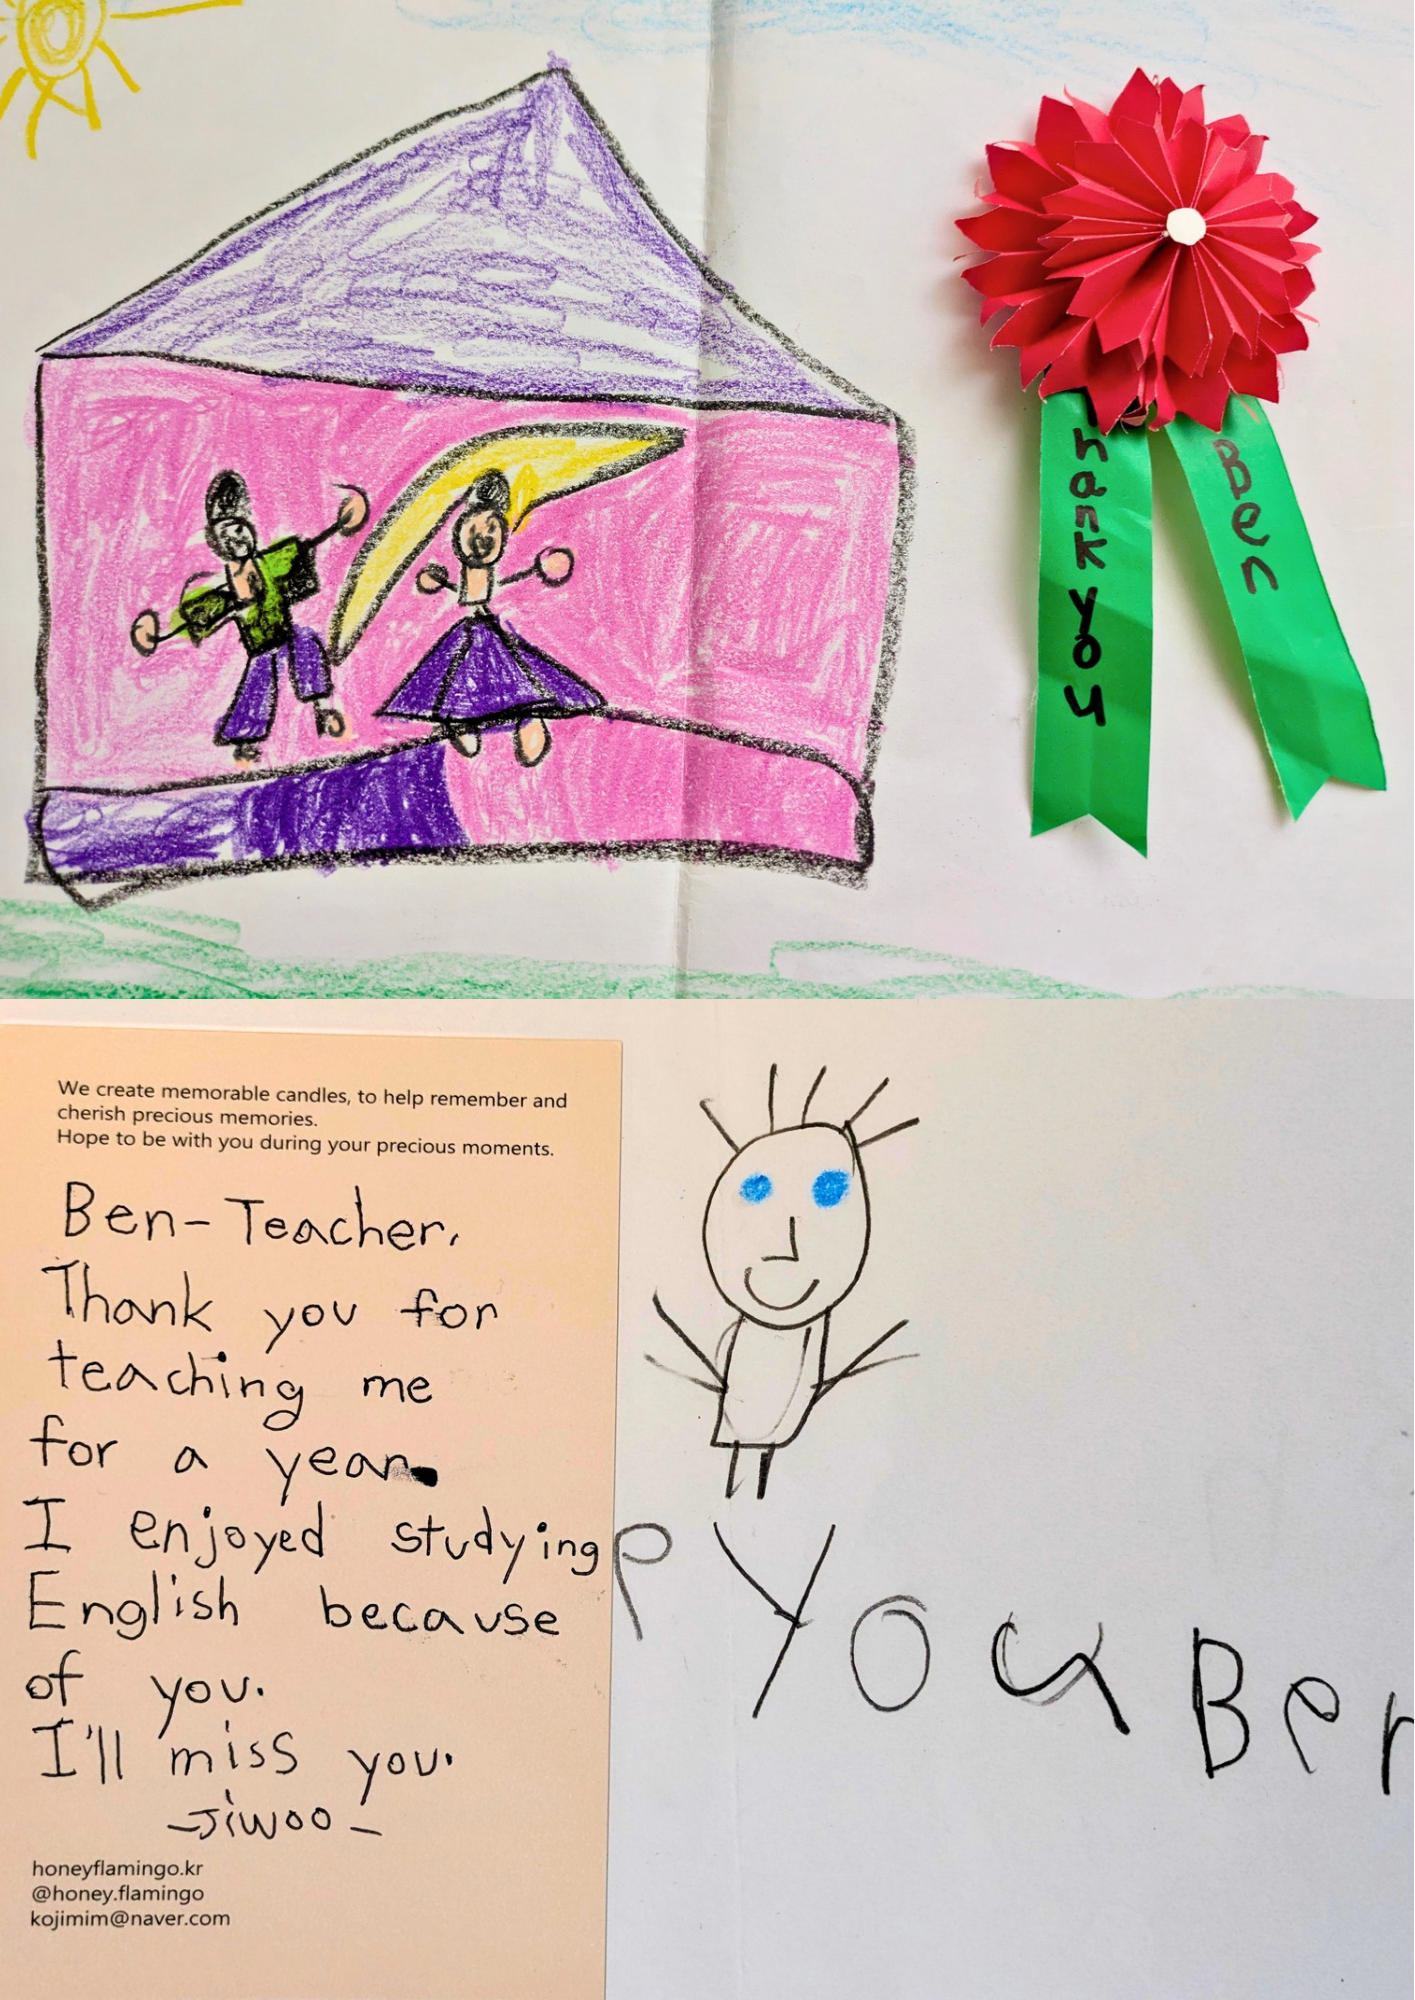 hank you
Ben
We create memorable candles, to help remember and
cherish precious memories.
Hope to be with you during your precious moments.
Ben-Teacher,
Thank you for
teaching me
for a year.
I enjoyed studying
English because
of you.
I'll miss you.
-Jiwoo-
honeyflamingo.kr
@honey.flamingo
kojimim@naver.com
P you Ben